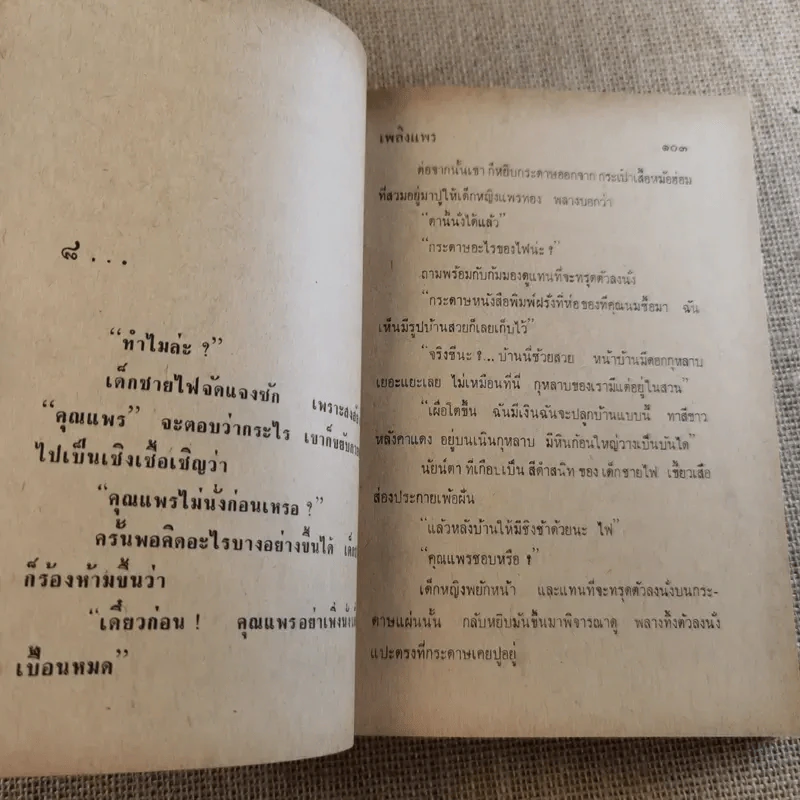 ๘...
“ทำไมล่ะ ?”
เด็กชายไฟจัดแจงชัก เพราะสงสัย
“คุณแพร” จะตอบว่ากระไร เขาก็ขยับ
ไปเป็นเชิงเชื้อเชิญว่า
“คุณแพรไม่นั่งก่อนเหรอ ?”
ครั้นพอคิดอะไรบางอย่างขึ้นได้
ก็ร้องห้ามขึ้นว่า
“เดี๋ยวก่อน ! คุณแพรอย่าเพิ่งนั่ง
เปื้อนหมด”
เพลิงแพร
๑๐๓
ต่อจากนั้นเขา ก็หยิบกระดาษออกจาก กระเป๋าเสื้อหม้อฮ่อม
ที่สวมอยู่มาปูให้เด็กหญิงแพรทอง พลางบอกว่า
“ตานี้นั่งได้แล้ว”
“กระดาษอะไรของไฟน่ะ ?”
ถามพร้อมกับก้มมองดูแทนที่จะทรุดตัวลงนั่ง
“กระดาษหนังสือพิมพ์ฝรั่งที่ห่อของที่คุณนมซื้อมา ฉัน
เห็นมีรูปบ้านสวยก็เลยเก็บไว้”
“จริงซีนะ ?... บ้านนี้ซ้วยสวย หน้าบ้านมีดอกกุหลาบ
เยอะแยะเลย ไม่เหมือนที่นี่ กุหลาบของเรามีแต่อยู่ในสวน”
“เผื่อโตขึ้น ฉันมีเงินฉันจะปลูกบ้านแบบนี้ ทาสีขาว
หลังคาแดง อยู่บนเนินกุหลาบ มีหินก้อนใหญ่วางเป็นบันได”
นัยน์ตา ที่เกือบเป็น สีดำสนิท ของ เด็กชายไฟ เขียวเสือ
ส่องประกายเพ้อฝัน
“แล้วหลังบ้านให้มีชิงช้าด้วยนะ ไฟ”
“คุณแพรชอบหรือ ?”
เด็กหญิงพยักหน้า และแทนที่จะทรุดตัวลงนั่งบนกระ-
ดาษแผ่นนั้น กลับหยิบมันขึ้นมาพิจารณาดู พลางทิ้งตัวลงนั่ง
แปะตรงที่กระดาษเคยปูอยู่